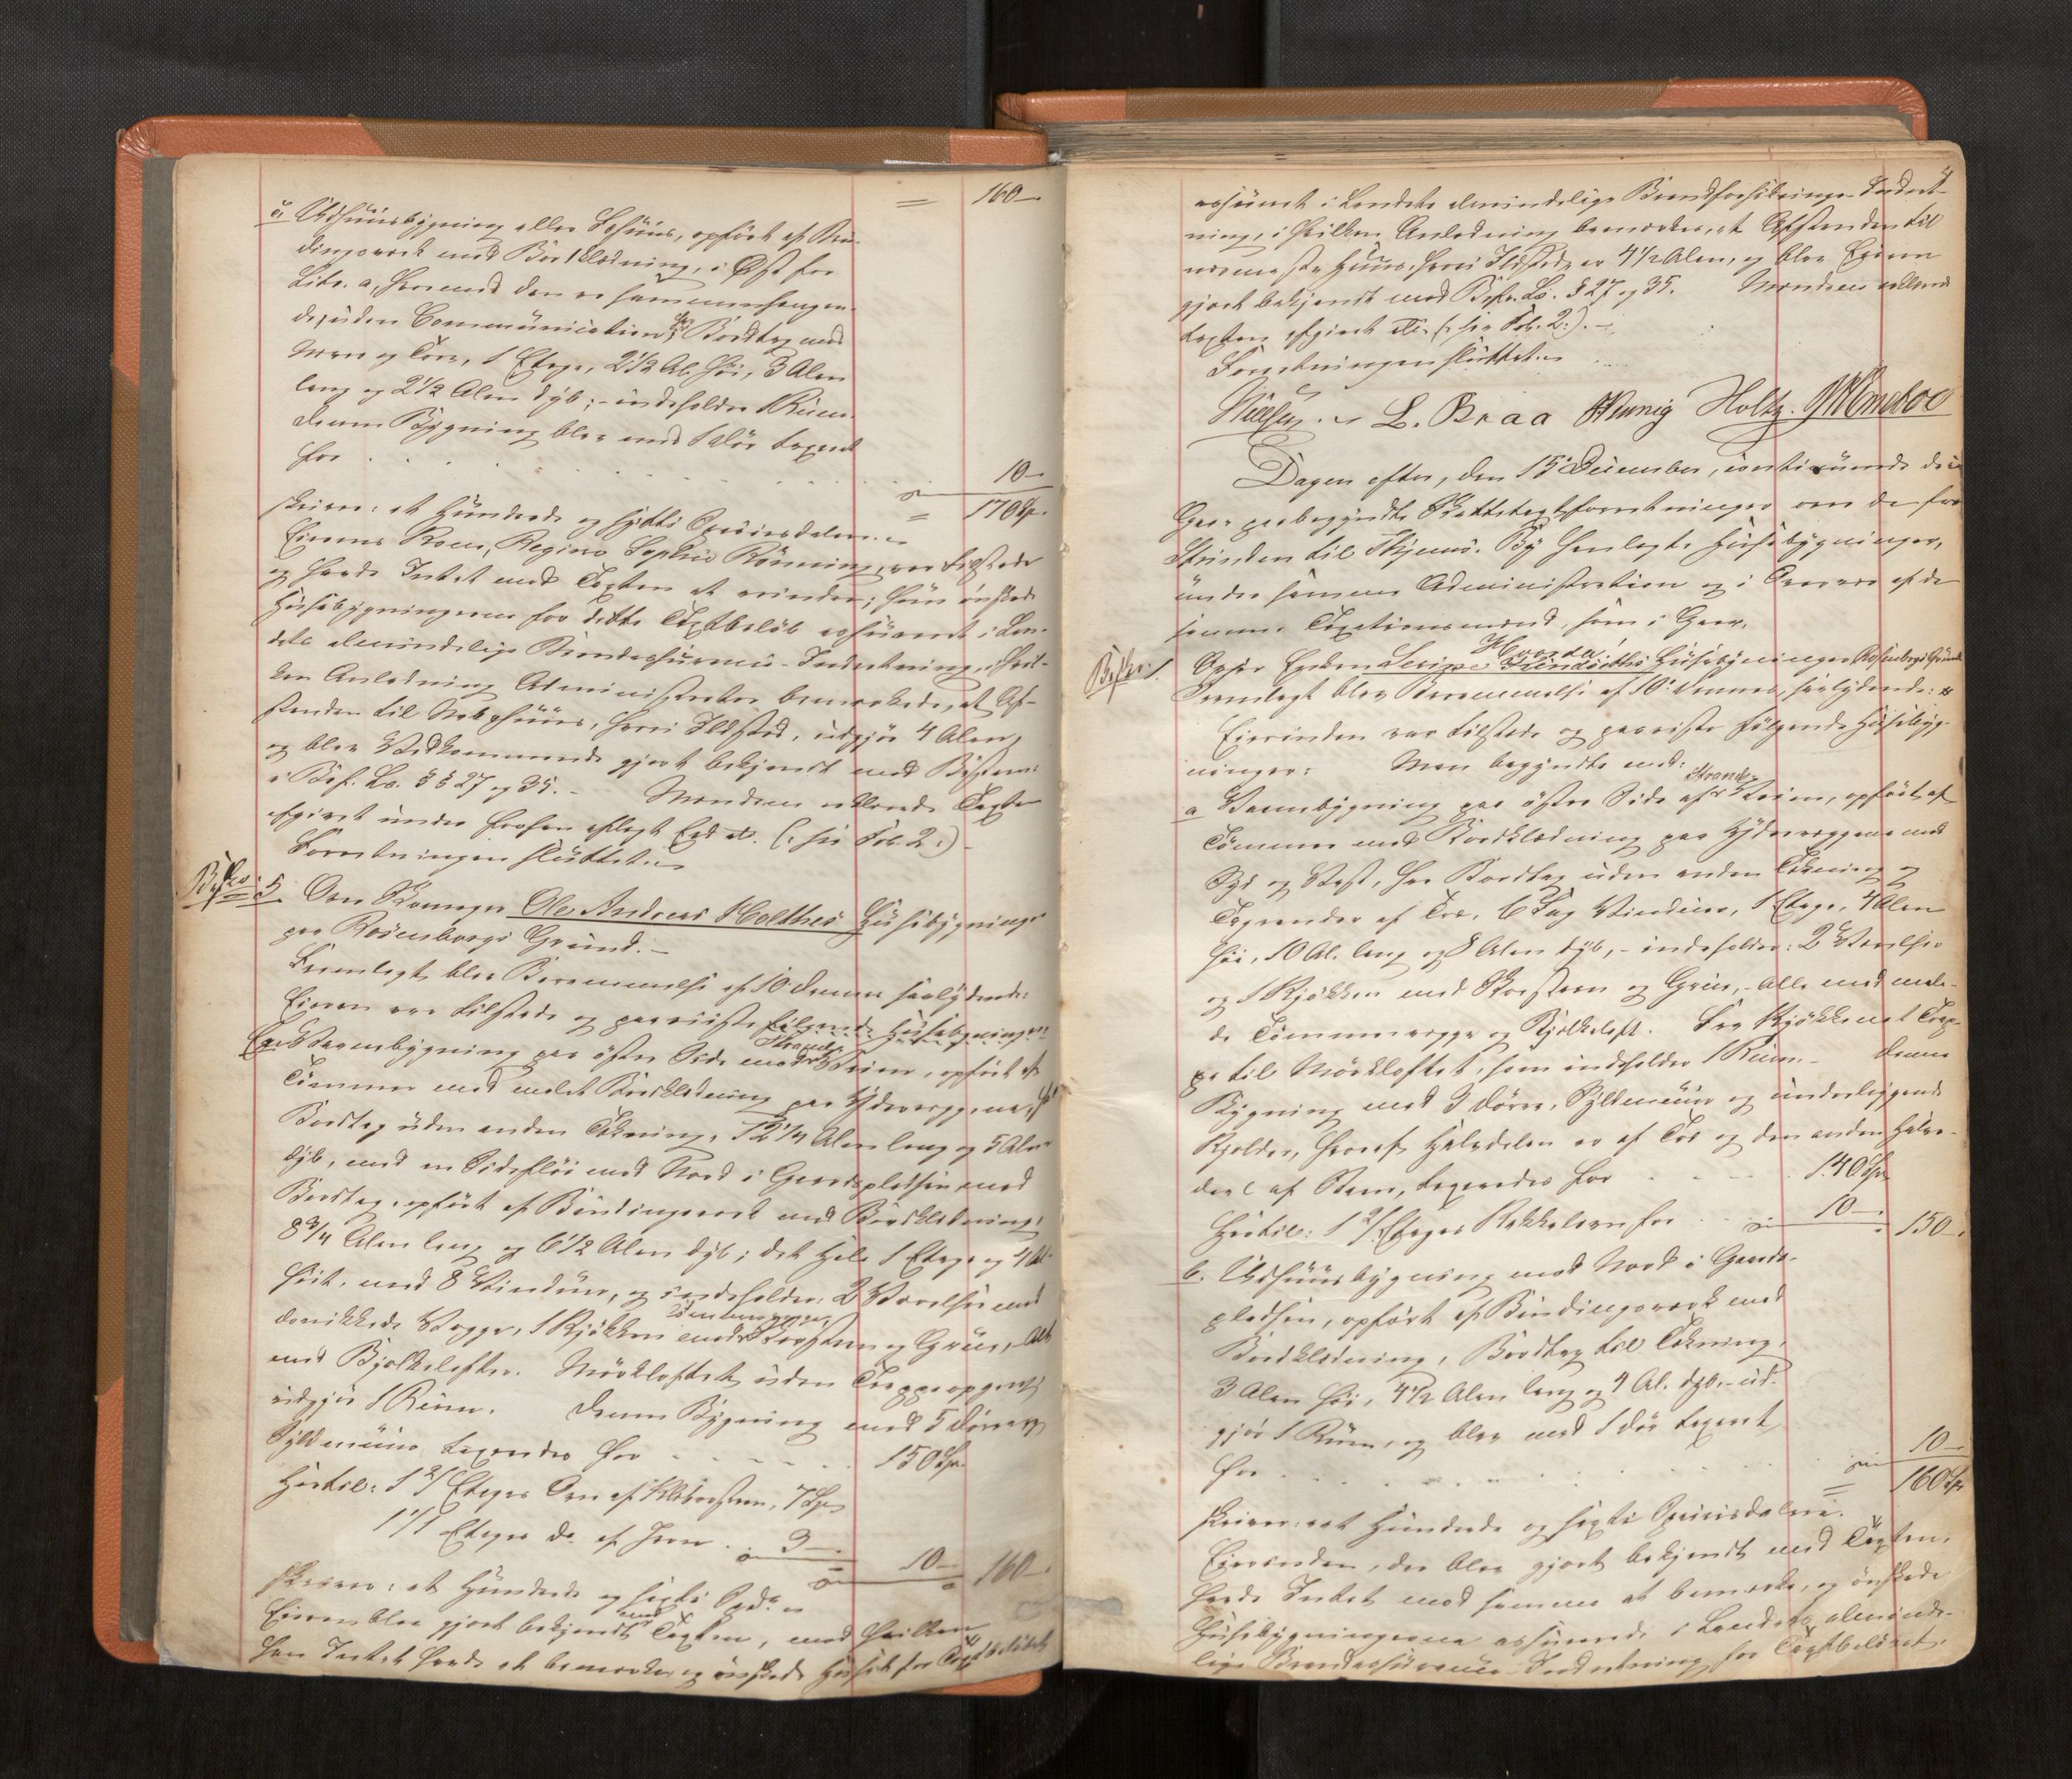 = 160 –
b, Udhuusbygning eller Sehuus, opført af Bin-
dingsverk med Bordklædning, i Øst for
Litr. a, hvormed den er sammenhængen-
de, uden Communication, har Bordtag med
Næver og Torv, 1 Etage, 2 1/2 Al. høi, 3 Alen
lang og 2 1/2 Alen dyb; – indeholder 1 Rum.
Denne Bygning blev med 1 Dør taxeret
for . . . . . . . . . 10 –
skriver: et Hundrede og sytti Speciesdaler. = 170 Sp.
Eierens Kone, Regine Sophie Rönning, var tilstede
og havde Intet mod Taxten at erindre; hun ønskede
Huusbygningerne for dette Taxtbeløb assureret i Lan-
dets almindelige Brandassurance-Indretning, i hvil-
ken Anledning Administrator bemærkede, at Af-
standen til Nabohuus, hvori Ildsted, udgjør 4 Alen,
og blev Vedkommende gjort bekjendt med Bestem:
i Brf. Lov. §§ 27 og 35. – Mændene erklærede Taxten
afgivet under forhen aflagt Eed etc. (: see Fol. 2 :)
Forretningen sluttet.
Besk: No: 5. Over Skomager Ole Andreas Holthes Huusbygninger
paa Rosenborgs Grund. –
Fremlagt blev Berammelse af 10 dennes saalydende:
Eieren var tilstede og paaviiste følgende Huusbygninger:
a, Vaanebygning paa østre Side med Strandveien, opført af
Tømmer med malet Bordklædning paa Ydervæggene, har
Bordtag uden anden Tækning, 12 1/4 Alen lang og 5 Alen
dyb, med en Sidefløi mod Nord i Gaardspladsen med
Bordtag, opført af Bindingsverk med Bordklædning,
8 3/4 Alen lang og 6 1/2 Alen dyb; det Hele 1 Etage og 4 Al.
høit, med 8 Vinduer, og indeholder: 2 Værelser med
Vægge, 1 Kjøkken med Skorsteen og Gruus, – Alt
med Bjælkelofter. Mørkloftet, uden Trappeopgang,
udgjør 1 Rum. Denne Bygning med 5 Dørre og
Syldmuur taxeredes for . . . . . 150 Sp.
Hertil: 1 2/ Etages Ovn af Klebersteen, 7 Sp
1 1/ Etages do. af Jern . 3 –
10 – 160 –
skriver: et Hundrede og sexti Spd.
Eieren blev gjort bekjendt med Taxten, mod hvilken
han Intet havde at bemærke og ønskede Huset for Taxtbeløbet
4
assureret i Landets almindelige Brandforsikrings-Indret-
ning, i hvilken Anledning bemærkes, at Afstanden til
nærmeste Huus, hvori Ildsted, er 4 1/2 Alen, og blev Eieren
gjort bekjendt med Brf. Lov. § 27 og 35. Mændene erklærede
Taxten afgivet etc. (: see Fol. 2 :). –
Forretningen sluttet.
Nielsen. L. Braa HHennig Holtz.
Dagen efter, den 15 December, continuerede de i
Gaar paabegyndte Skattetaxtforretninger over de fra
Strinden til Thjems. By henlagte Huusbygninger,
under samme Administration og i Overvær af de
samme Taxationsmænd, som i Gaar.
Besk: No: 1. Over Enken Hovda! Huusbygninger Rosenborgs Grund
Fremlagt blev Berammelse af 10 dennes, saalydende:
Eierinden var tilstede og paaviste følgende Huusbyg-
ninger: Man begyndte med:
a Vaanebygning paa østre Side af Strandveien, opført af
Tømmer med Bordklædning paa Ydervæggene mod
Syd og Vest, har Bordtag uden anden Tækning og
Tagrender af Træ, 6 Fag Vinduer, 1 Etage, 4 Alen
høi, 10 Al. lang og 8 Alen dyb, – indeholder: 2 Værelser
og 1 Kjøkken med Skorsteen og Gruus, – Alle med male-
de Tømmervægge og Bjelkeloft. Fra Kjøkkenet Trap-
pe til Mørkloftet, som indeholder 1 Rum. – Denne
Bygning med 3 Dørre, Syldmuur og underliggende
Kjelder, hvoraf Halvdelen er af Træ og den anden Halv-
deel af Steen, taxeredes for . . . . 140 Sp.
Hertil: 1 2/ Etages Kakkelovn for . . . 10 – 150 –
b. Udhuusbygning mod Nord i Gaards-
pladsen, opført af Bindingsverk med
Bordklædning, Bordtag til Tækning,
3 Alen høi, 4 1/2 Alen lang og 4 Al. dyb, – ud-
gjør 1 Rum, og blev med 1 Dør taxeret
for . . . . . . . . . 10 –
= 160 Sp
skriver: eet Hundrede og sexti Speciesdaler.
Eierinden, der blev gjort bekjendt med Taxten,
havde Intet mod samme at bemærke, og ønskede
Huusbygningerne assurerede i Landets alminde-
lige Brandassurance-Indretning for Taxtbeløbet.